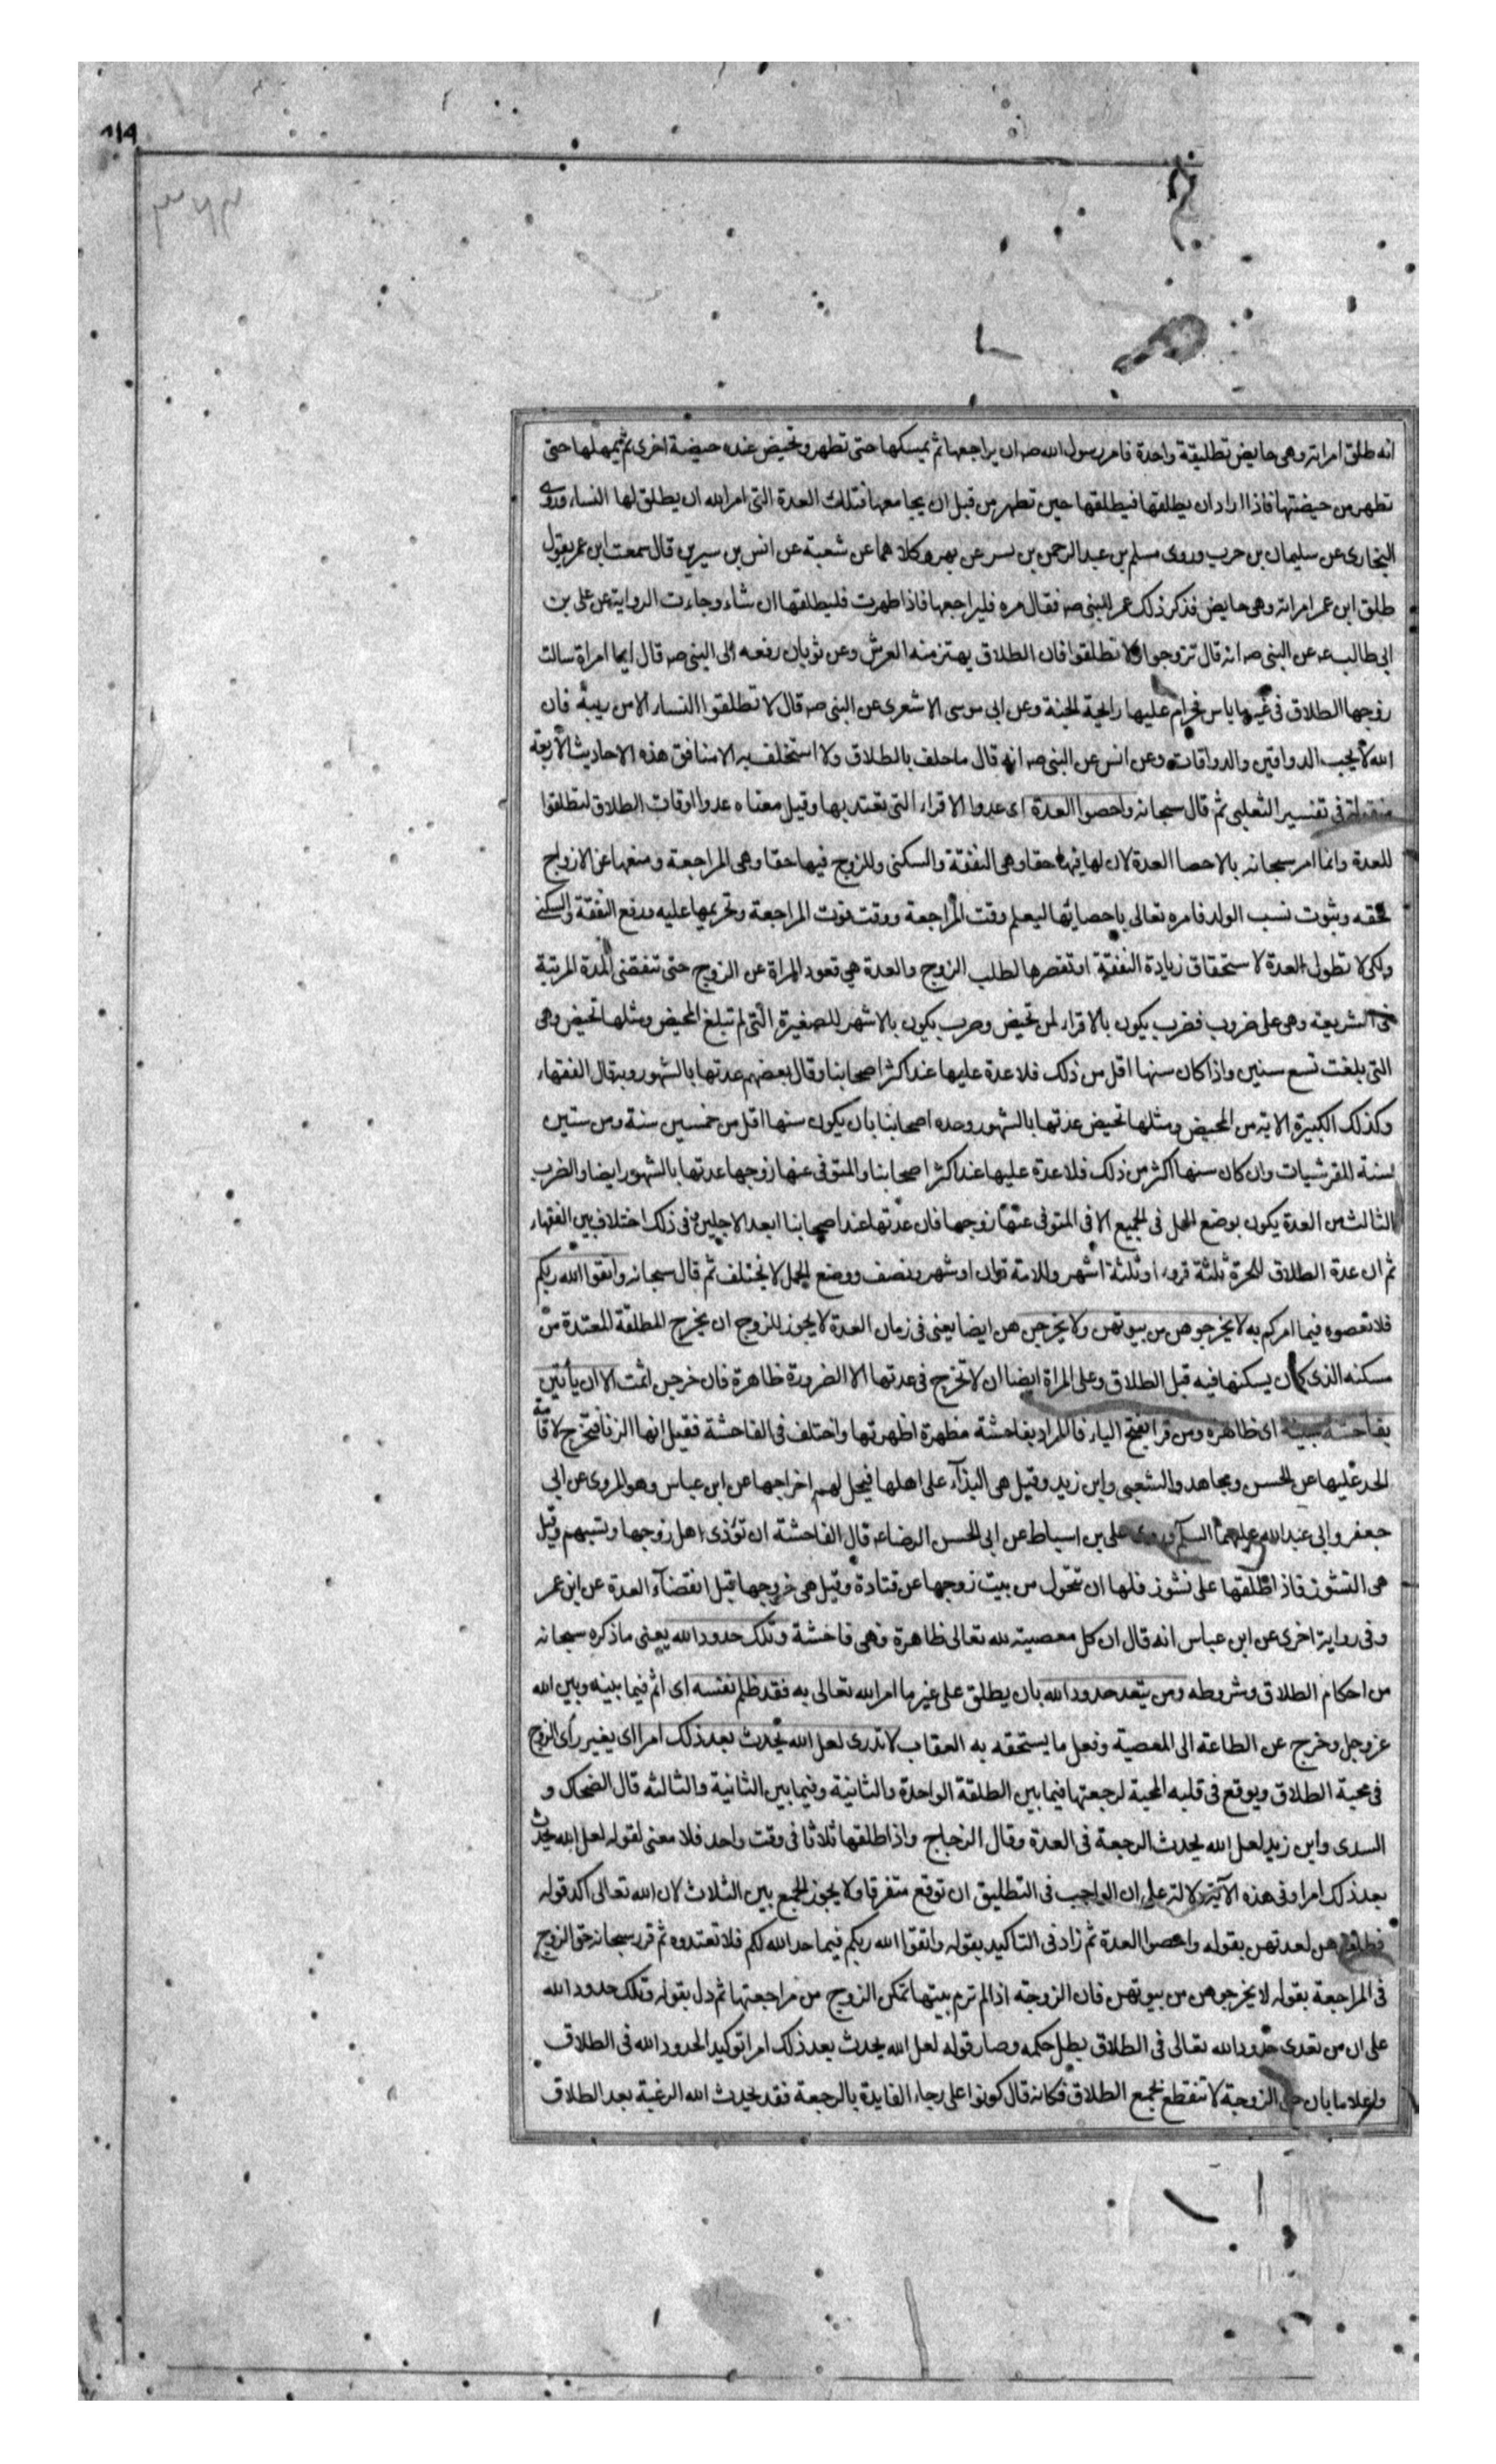 انه طلق امراته وهى حايض تطليقة واحدة فامره رسول الله صه ان يراجعها ثم يمسكها حتى تطهر وتحيض عنده حيضة اخرى ثم يمهلها حتى
تطهر من حيضتها فاذا اراد ان يطلقها فيطلقها حين تطهر من قبل ان يجامعها فتلك العدة التى امر الله ان يطلق لها النساء وروى
البخارى عن سليمان بن حرب وروى مسلم بن عبد الرحمن بن بسر عن بهز وكلاهما عن شعبة عن انس بن سيرين قال سمعت ابن عمر يقول
طلق ابن عمر امراته وهى حايض فذكر ذلك عمر للنبى صه فقال مره فليراجعها فاذا طهرت فليطلقها ان شاء وجاءت الرواية عن على بن
ابى طالب عه عن النبى صه انه قال تزوجوا ولا تطلقوا فان الطلاق يهتز منه العرش وعن ثوبان رفعه الى النبى صه قال ايما امراة سالت
زوجها الطلاق فى غير ما باس فحرام عليها رايحة الجنة وعن ابى موسى الاشعرى عن النبى صه قال لا تطلقوا النساء الا من ريبة فان
الله لا يحب الذواقين والذواقات وعن انس عن النبى صه انه قال ما حلف بالطلاق ولا استحلف به الا منافق هذه الاحاديث الاربعة
منقولة فى تفسير الثعلبى ثم قال سبحانه واحصوا العدة اى عدوا الاقراء التى تعتد بها وقيل معناه عدوا اوقات الطلاق لتطلقوا
للعدة وانما امر سبحانه بالاحصا العدة لان لها فيها حقا وهى النفقة والسكنى وللزوج فيها حقا وهى المراجعة ومنعها عن الازواج
لحقه وثبوت نسب الولد فامره تعالى باحصايها ليعلم وقت المراجعة ووقت فوت المراجعة وتحريمها عليه ورفع النفقة والسكنى
ولكى لا تطول العدة لاستحقاق زيادة النفقة او تقصرها لطلب الزوج والعدة هى قعود المراة عن الزوج حتى تنقضى المدة المرتبة
فى الشريعة وهى على ضروب فضرب يكون بالاقراء لمن تحيض وضرب يكون بالاشهر للصغيرة التى لم تبلغ المحيض ومثلها تحيض وهى
التى بلغت تسع سنين واذا كان سنها اقل من ذلك فلا عدة عليها عند اكثر اصحابنا وقال بعضهم عدتها بالشهور وبه قال الفقهاء
وكذلك الكبيرة الاية من المحيض ومثلها تحيض عدتها بالشهور وحده اصحابنا بان يكون سنها اقل من خمسين سنة ومن ستين
سنة للقرشيات وان كان سنها اكثر من ذلك فلا عدة عليها عند اكثر اصحابنا والمتوفى عنها زوجها عدتها بالشهور ايضا والضرب
الثالث من العدة يكون بوضع الحمل فى الجميع الا فى المتوفى عنها زوجها فان عدتها عند اصحابنا ابعد الاجلين وفى ذلك اختلاف بين الفقهاء
ثم ان عدة الطلاق للحرة ثلثة قروء او ثلثة اشهر وللامة قران او شهر ونصف ووضع الحمل لا يختلف ثم قال سبحانه واتقوا الله ربكم
فلا تعصوه فيما امركم به لا يخرجوهن من بيوتهن ولا يخرجن هن ايضا يعنى فى زمان العدة لا يجوز للزوج ان يخرج المطلقة المعتدة من
مسكنه الذى كان يسكنها فيه قبل الطلاق وعلى المراة ايضا ان لا تخرج فى عدتها الا الضرورة ظاهرة فان خرجن اثمت الا ان ياتين
بفاحشة مبينة اى ظاهرة ومن قرا بفتح الياء فالمراد بفاحشة مظهرة اظهرتها واختلف فى الفاحشة فقيل انها الزنا فتخرج لاقامة
الحد عليها عن الحسن ومجاهد والشعبى وابن زيد وقيل هى البذآء على اهلها فيحل لهم اخراجها عن ابن عباس وهو المروى عن ابى
جعفر وابى عبد الله عليهما السلم وروى على بن اسباط عن ابى الحسن الرضا عه قال الفاحشة ان تؤذى اهل زوجها وتسبهم وقيل
هى النشوز فاذ اطلقها على نشوز فلها ان تتحول من بيت زوجها عن قتادة وقيل هى خروجها قبل انقضآء العدة عن ابن عمر
وفى رواية اخرى عن ابن عباس انه قال ان كل معصية لله تعالى ظاهرة فهى فاحشة وتلك حدود الله يعنى ما ذكره سبحانه
من احكام الطلاق وشروطه ومن يتعد حدود الله بان يطلق على غير ما امر الله تعالى به فقد ظلم نفسه اى اثم فيما بينه وبين الله
عز وجل وخرج عن الطاعة الى المعصية وفعل ما يستحقه به العقاب لا تدرى لعل الله يحدث بعد ذلك امرا اى يغير راى الزوج
فى محبة الطلاق ويوقع فى قلبه المحبة لرجعتها فيما بين الطلقة الواحدة والثانية وفيما بين الثانية والثالثه قال الضحاك و
السدى وابن زيد لعل الله يحدث الرجعة فى العدة وقال الزجاج واذا طلقها ثلاثا فى وقت واحد فلا معنى لقوله لعل الله يحدث
بعد ذلك امرا وفى هذه الآية دلالة على ان الواجب فى التطليق ان توقع متفرقا ولا يجوز الجمع بين الثلاث لان الله تعالى اكد قوله
فطلقوهن لعدتهن بقوله واحصوا العدة ثم زاد فى التاكيد بقوله واتقوا الله ربكم فيما حد الله لكم فلا تعتدوه ثم قرر سبحانه حق الزوج
فى المراجعة بقوله لا يخرجوهن من بيوتهن فان الزوجة اذا لم ترم بيتها تمكن الزوج من مراجعتها ثم دل بقوله وتلك حدود الله
على ان من تعدى حدود الله تعالى فى الطلاق بطل حكمه وصار قوله لعل الله يحدث بعد ذلك امرا توكيدا لحدود الله فى الطلاق
واعلاما بان حق الزوجة لا تنقطع بجمع الطلاق فكانه قال كونوا على رجاء الفايدة بالرجعة فقد يحدث الله الرغبة بعد الطلاق